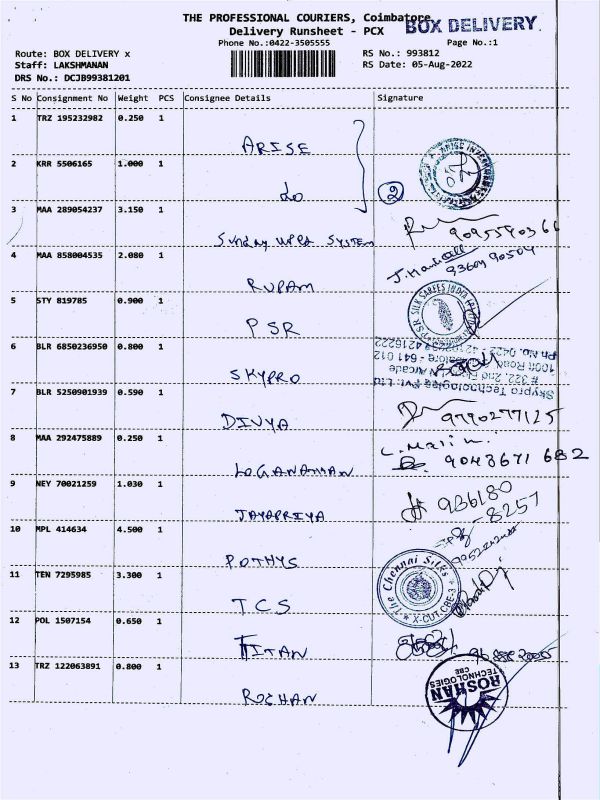 THE PROFESSIONAL COURIERS, Coimbatore
BOX DELIVERY
Delivery Runsheet - PCX
Phone No.:0422-3505555
Page No.:1
Route: BOX DELIVERY x
RS No.: 993812
Staff: LAKSHMANAN
RS Date: 05-Aug-2022
DRS No.: DCJB99381201
S No Consignment No Weight PCS Consignee Details Signature
1 TRZ 195232982 0.250 1
ARISE
2 KRR 5506165 1.000 1
do
2
3 MAA 289054237 3.150 1
Sunday SYSTEM
9095590366
4 MAA 858004535 2.080 1
RUPAM
9360490504
5 STY 819785 0.900 1
PSR
P.S.R SILK SAREES INDIA
6 BLR 6850236950 0.800 1
SKYPRO
Skypro Technologies Pvt. Ltd
# 322, 2nd Arcade
100ft Road - 641 012
Ph No. 0422 4216222
7 BLR 5250901939 0.590 1
DIVYA
9790277125
8 MAA 292475889 0.250 1
LOGANATHAN
9043671682
9 NEY 70021259 1.030 1
JAYAPRIYA
936180
8257
10 MPL 414634 4.500 1
POTHYS
11 TEN 7295985 3.300 1
TCS
The Chennai Silks
X-CUT.CBE-3
12 POL 1507154 0.650 1
TITAN
13 TRZ 122063891 0.800 1
ROSHAN
ROSHAN
TECHNOLOGIES
CBE